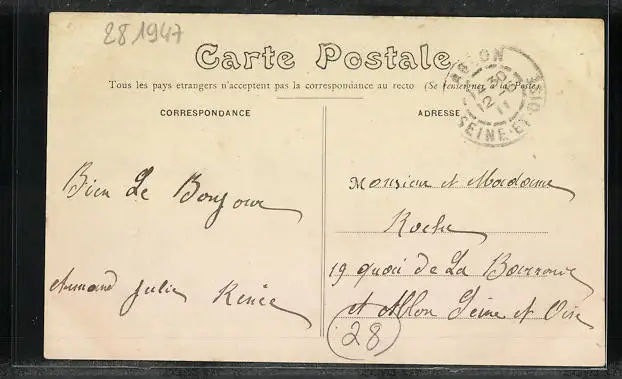 28 1947
Carte Postale
Tous les pays etrangers n'acceptent pas la correspondance au recto (Se renseigner à la Poste)
CORRESPONDANCE
ADRESSE
ABLON
30
12
11
SEINE-ET-OISE
Bien Le Bonjour
Armand Julie Renée
Monsieur et Madame
Roche
19 quai de La Baronnie
et Ablon Seine et Oise
28